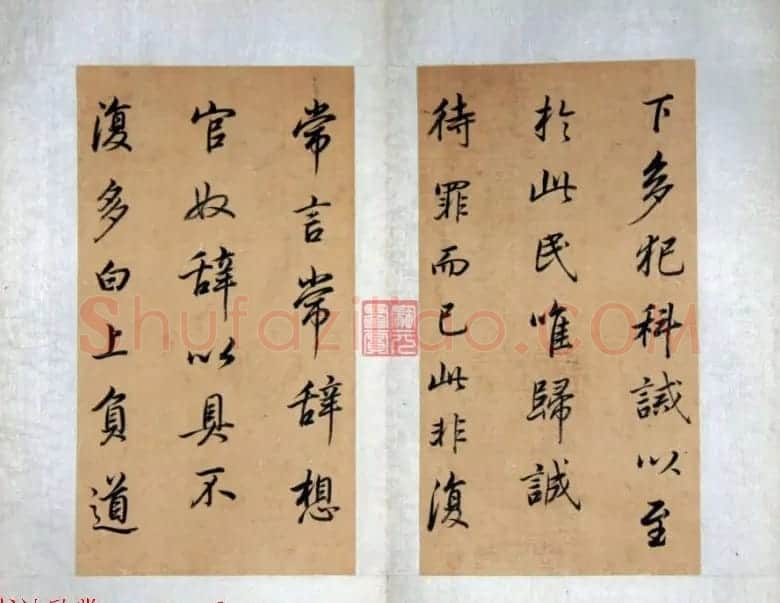 下多犯科誡以至
於此民唯歸誠
待罪而已此非復
常言常辞想
官奴辞以具不
復多白上負道
Shufaziliao.com